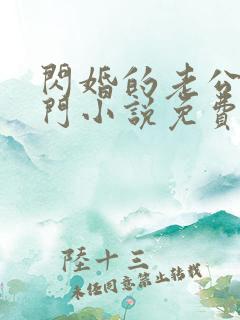 閃婚的老公
門小說免費
陸十三
未经同意禁止转载